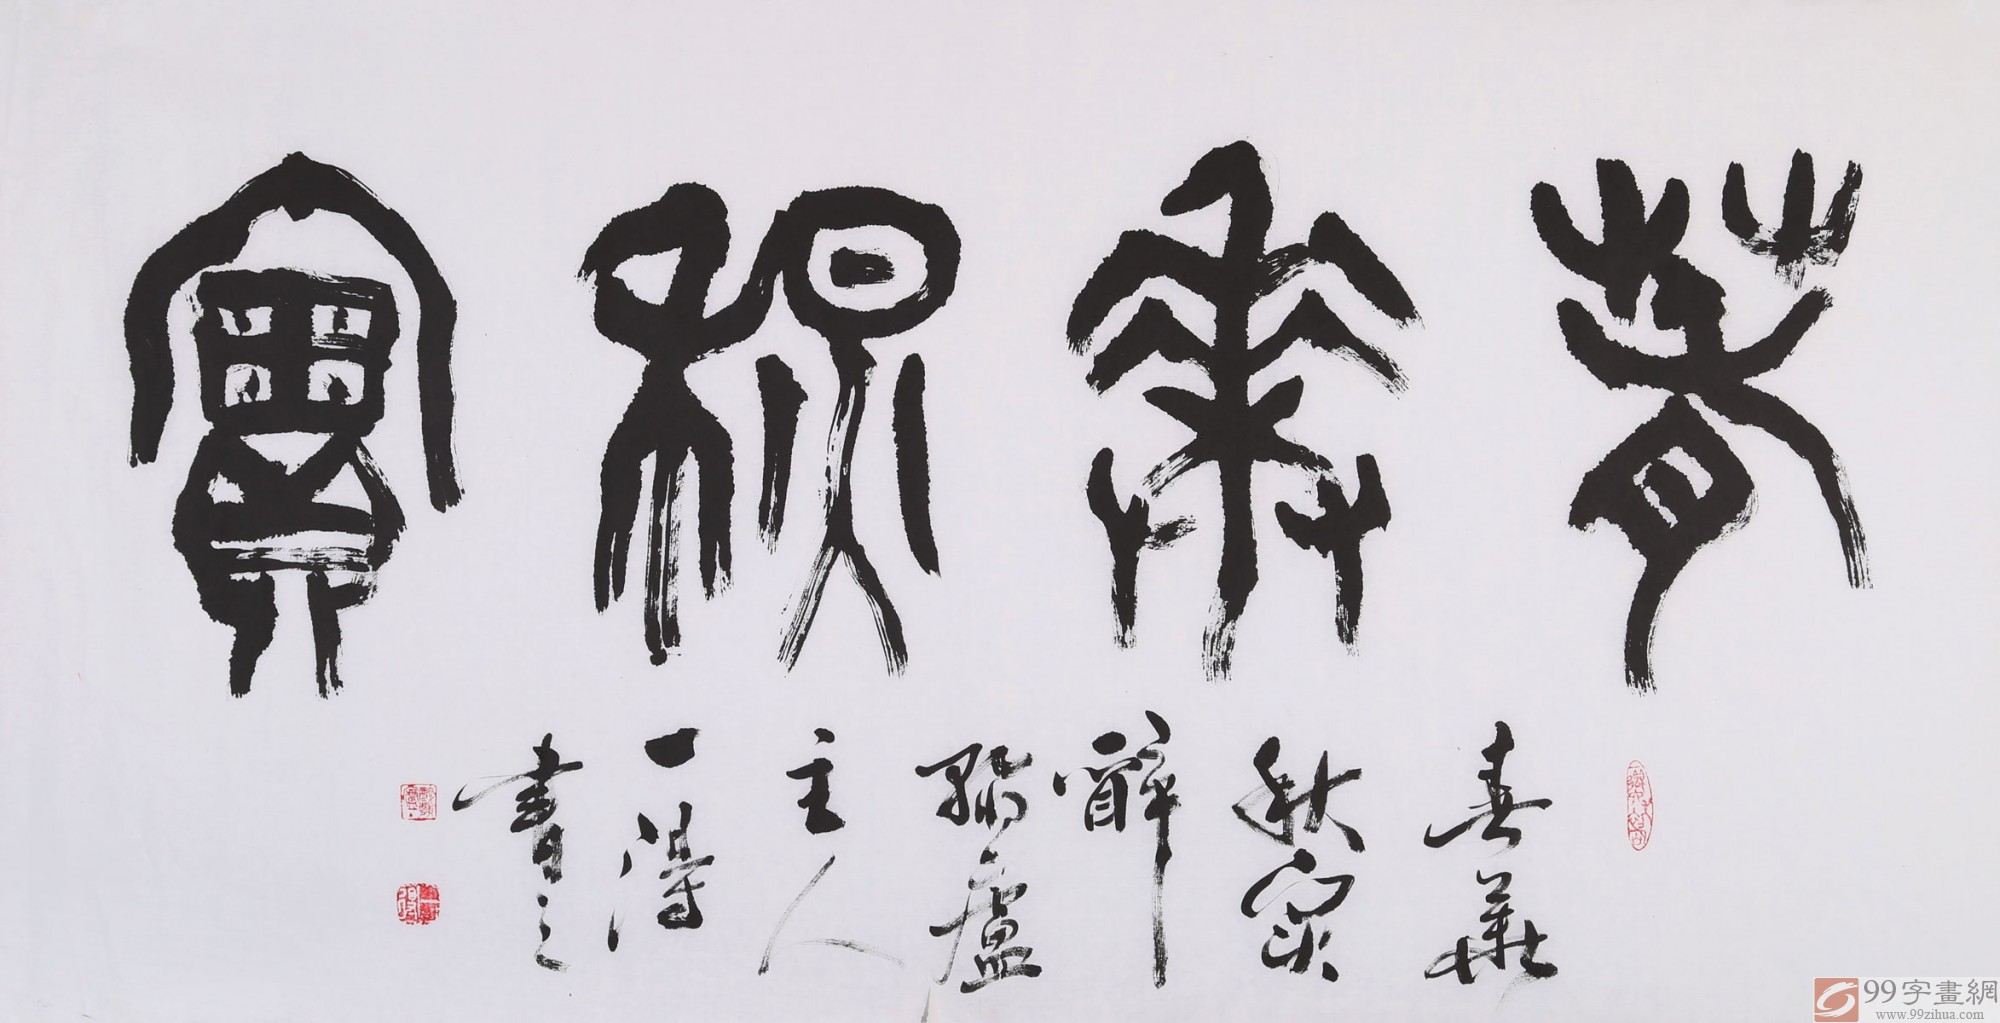 春華秋實
春華
秋實
醉
廬
主人
一得
書之
99字畫網
www.99zihua.com